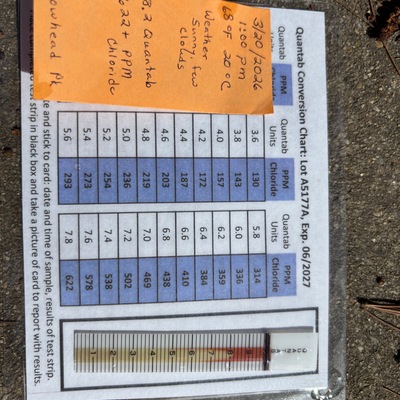 Quantab Conversion Chart: Lot A5177A, Exp. 06/2027
3/20/2026
1:00 pm
68°F 20°C
Weather
Sunny, few
clouds
8.2 Quantab
622+ PPM
Chloride
Quantab Units PPM Chloride
Quantab Units PPM Chloride
3.6 130
3.8 143
4.0 157
4.2 172
4.4 187
4.6 203
4.8 219
5.0 236
5.2 254
5.4 273
5.6 293
Quantab Units PPM Chloride
5.8 314
6.0 336
6.2 359
6.4 384
6.6 410
6.8 438
7.0 469
7.2 502
7.4 538
7.6 578
7.8 622
QUANTAB
9
8
7
6
5
4
3
2
1
and stick to card: date and time of sample, results of test strip.
strip in black box and take a picture of card to report with results.